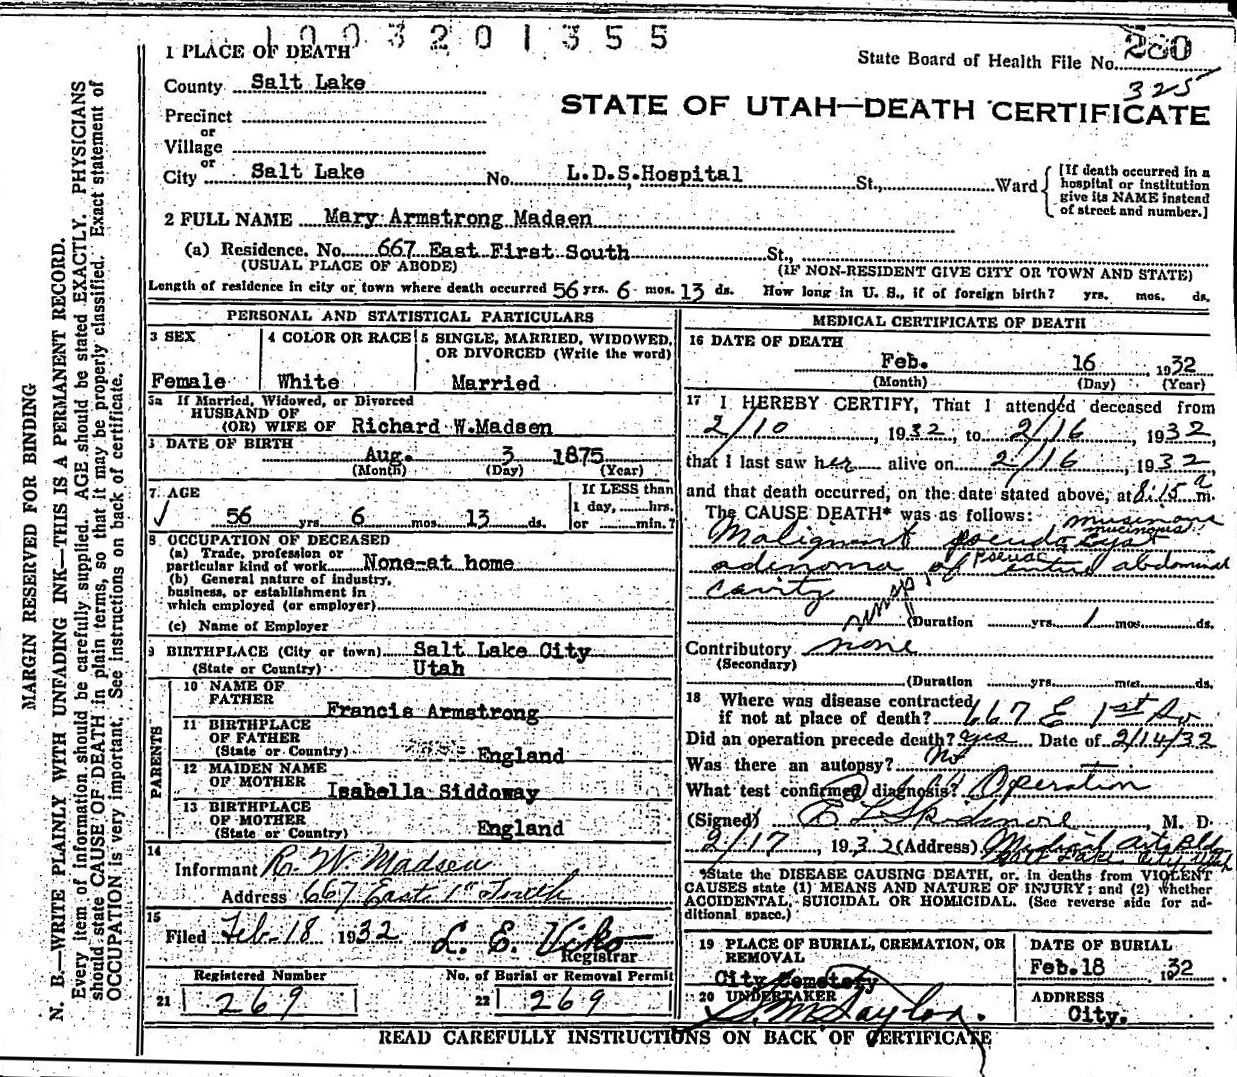 1003201355
1 PLACE OF DEATH
State Board of Health File No. 280
325
County Salt Lake
STATE OF UTAH—DEATH CERTIFICATE
Precinct
or
Village
or
City Salt Lake No. L.D.S. Hospital St., Ward
[If death occurred in a
hospital or institution
give its NAME instead
of street and number.]
2 FULL NAME Mary Armstrong Madsen
(a) Residence. No. 667 East First South St.,
(USUAL PLACE OF ABODE) (IF NON-RESIDENT GIVE CITY OR TOWN AND STATE)
Length of residence in city or town where death occurred 56 yrs. 6 mos. 13 ds. How long in U. S., if of foreign birth? yrs. mos. ds.
PERSONAL AND STATISTICAL PARTICULARS
3 SEX
Female
4 COLOR OR RACE
White
5 SINGLE, MARRIED, WIDOWED,
OR DIVORCED (Write the word)
Married
5a If Married, Widowed, or Divorced
HUSBAND OF
(OR) WIFE OF Richard W. Madsen
DATE OF BIRTH
Aug. 3 1875
(Month) (Day) (Year)
7 AGE
56 yrs. 6 mos. 13 ds.
If LESS than
1 day, hrs.
or min.?
8 OCCUPATION OF DECEASED
(a) Trade, profession or
particular kind of work None-at home
(b) General nature of industry,
business, or establishment in
which employed (or employer)
(c) Name of Employer
9 BIRTHPLACE (City or town) Salt Lake City
(State or Country) Utah
PARENTS
10 NAME OF
FATHER Francis Armstrong
11 BIRTHPLACE
OF FATHER
(State or Country) England
12 MAIDEN NAME
OF MOTHER Isabella Siddoway
13 BIRTHPLACE
OF MOTHER
(State or Country) England
14
Informant R. W. Madsen
Address 667 East 1st South
15
Filed Feb-18 1932 L. E. Viko
Registrar
Registered Number No. of Burial or Removal Permit
21 269 22 269
MEDICAL CERTIFICATE OF DEATH
16 DATE OF DEATH
Feb. 16 1932
(Month) (Day) (Year)
17 I HEREBY CERTIFY, That I attended deceased from
2/10, 1932, to 2/16, 1932,
that I last saw her alive on 2/16, 1932,
and that death occurred, on the date stated above, at 8:15 a m.
The CAUSE DEATH* was as follows:
Malignant pseudo
adinoma of entire abdominal
cavity
(Duration yrs. 1 mos. ds.
Contributory none
(Secondary)
(Duration yrs. mos. ds.
18 Where was disease contracted
if not at place of death? 667 E 1st So
Did an operation precede death? yes Date of 2/14/32
Was there an autopsy? No
What test confirmed diagnosis? Operation
(Signed) E L Skidmore, M. D.
2/17, 1932 (Address) Medical Arts Bldg
Salt Lake City Utah
*State the DISEASE CAUSING DEATH, or in deaths from VIOLENT
CAUSES state (1) MEANS AND NATURE OF INJURY; and (2) whether
ACCIDENTAL, SUICIDAL OR HOMICIDAL. (See reverse side for ad-
ditional space.)
19 PLACE OF BURIAL, CREMATION, OR
REMOVAL
City Cemetery
DATE OF BURIAL
Feb. 18 1932
20 UNDERTAKER
S M Taylor.
ADDRESS
City.
READ CAREFULLY INSTRUCTIONS ON BACK OF CERTIFICATE
MARGIN RESERVED FOR BINDING
N. B.—WRITE PLAINLY WITH UNFADING INK—THIS IS A PERMANENT RECORD.
Every item of information should be carefully supplied. AGE should be stated EXACTLY. PHYSICIANS
should state CAUSE OF DEATH in plain terms, so that it may be properly classified. Exact statement of
OCCUPATION is very important. See instructions on back of certificate.